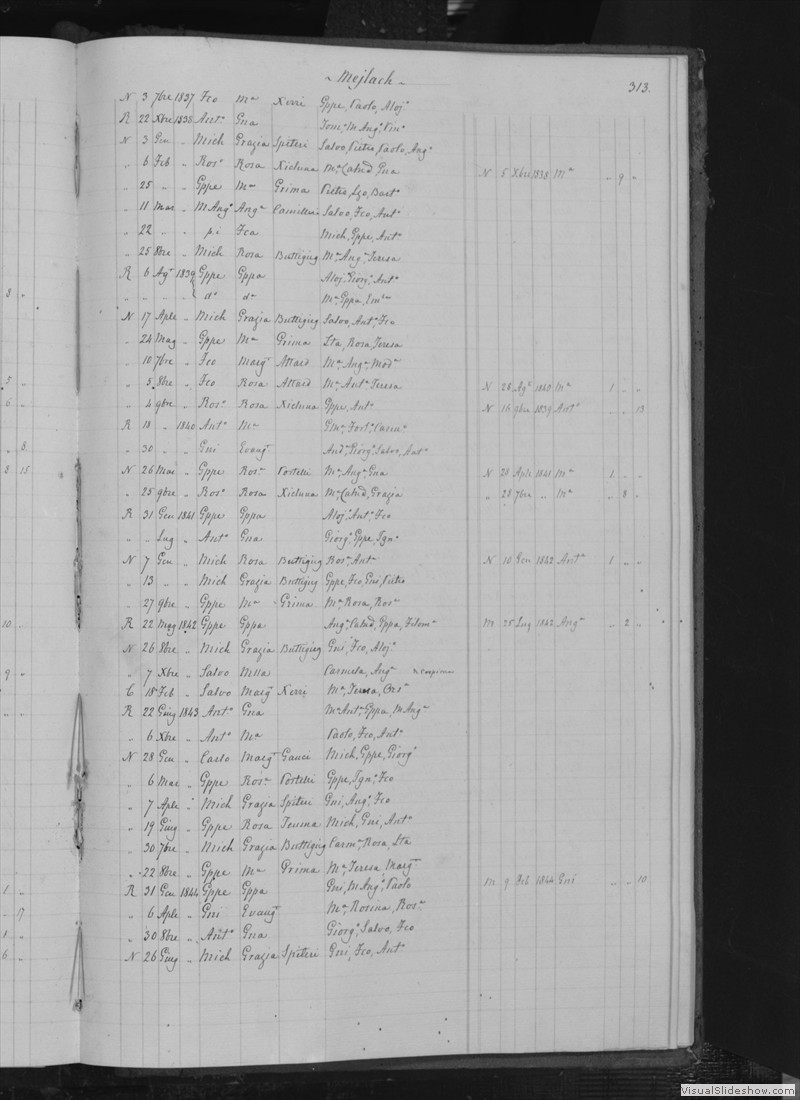 ~ Mejlach ~
313.
N 3 7bre 1837 Fco Mª Xerri Gppe, Paolo, Alojº
R 22 Xbre 1838 Antº Gna Tomª, M Angª, Vinª
N 3 Gen " Mich Grazia Spiteri Salvo, Pietro, Paolo, Angº
" 6 Feb " Rosº Rosa Xicluna Mª, Catud, Gna N 5 Xbre 1838 Mª " 9 "
" 25 " " Gppe Mª Grima Pietro, Lzo, Bastº
" 11 Mar " M Angº Angª Camilleri Salvo, Fco, Antº
" 22 " " pi Fca Mich, Gppe, Antº
" 25 8bre " Mich Rosa Buttigieg Mª, Angª, Teresa
R 6 Agº 1839 Gppe Gppa Aloj, Giorgº, Antº
" " " " dº dª Mª, Gppa, Emª
N 17 Aple " Mich Grazia Buttigieg Salvo, Antº, Fco
" 24 Mag " Gppe Mª Grima Lta, Rosa, Teresa
" 10 7bre " Fco Marg Attard Mª, Angª, Modª
" 5 8bre " Fco Rosa Attard Mª, Antª, Teresa N 26 Agº 1840 Mª 1 " "
" 4 9bre " Rosº Rosa Xicluna Gppe, Antº N 16 9bre 1839 Antº " " 13
R 18 " 1840 Antº Mª Gmª, Fortª, Carmª
" 30 " " Gni Evang Andª, Giorgº, Salvo, Antº
N 26 Mar " Gppe Rosª Portelli Mª, Angª, Gna N 28 Aple 1841 Mª 1 " "
" 25 9bre " Rosº Rosa Xicluna Mª, Catud, Grazia " 28 7bre " Mª " 8 "
R 31 Gen 1841 Gppe Gppa Alojº, Antº, Fco
" " Lug " Antº Gna Giorgº, Gppe, Ignº
N 7 Gen " Mich Rosa Buttigieg Rosº, Antº N 10 Gen 1842 Antº 1 " "
" 13 " " Mich Grazia Buttigieg Gppe, Fco, Gni, Pietro
" 27 9bre " Gppe Mª Grima Mª, Rosa, Rosª
R 22 Mag 1842 Gppe Gppa Angª, Catud, Gppa, Filomª M 25 Lug 1842 Angª " 2 "
N 26 8bre " Mich Grazia Buttigieg Gni, Fco, Alojº
" 7 Xbre " Salvo Carmela, Angª
C 18 Feb " Salvo Marg Xerri Mª, Teresa
R 22 Giug 1843 Antº Gna Mª Antª, Gppa, M Angª
" 6 Xbre " Antº Mª Paolo, Fco, Antº
N 28 Gen " Carlo Marg Gauci Mich, Gppe, Giorgº
" 6 Mar " Gppe Rosª Portelli Gppe, Ignº, Fco
" 7 Aple " Mich Grazia Spiteri Gni, Angº, Fco
" 19 Giug " Gppe Rosa Teuma Mich, Gni, Antº
" 30 7bre " Mich Grazia Buttigieg Carmª, Rosa, Lta
" 22 8bre " Gppe Mª Grima Mª, Teresa, Marg
R 31 Gen 1844 Gppe Gppa Gni, M Angº, Paolo M 9 Feb 1844 Gni " " 10
" 6 Aple " Gni Evang Mª, Rosina, Rosª
" 30 8bre " Antº Gna Giorgº, Salvo, Fco
N 26 Giug " Mich Grazia Spiteri Gni, Fco, Antº
8 "
5 "
6 "
" 8
8 15
10 "
9 "
" "
1 "
" 17
1 "
6 "
VisualSlideshow.com